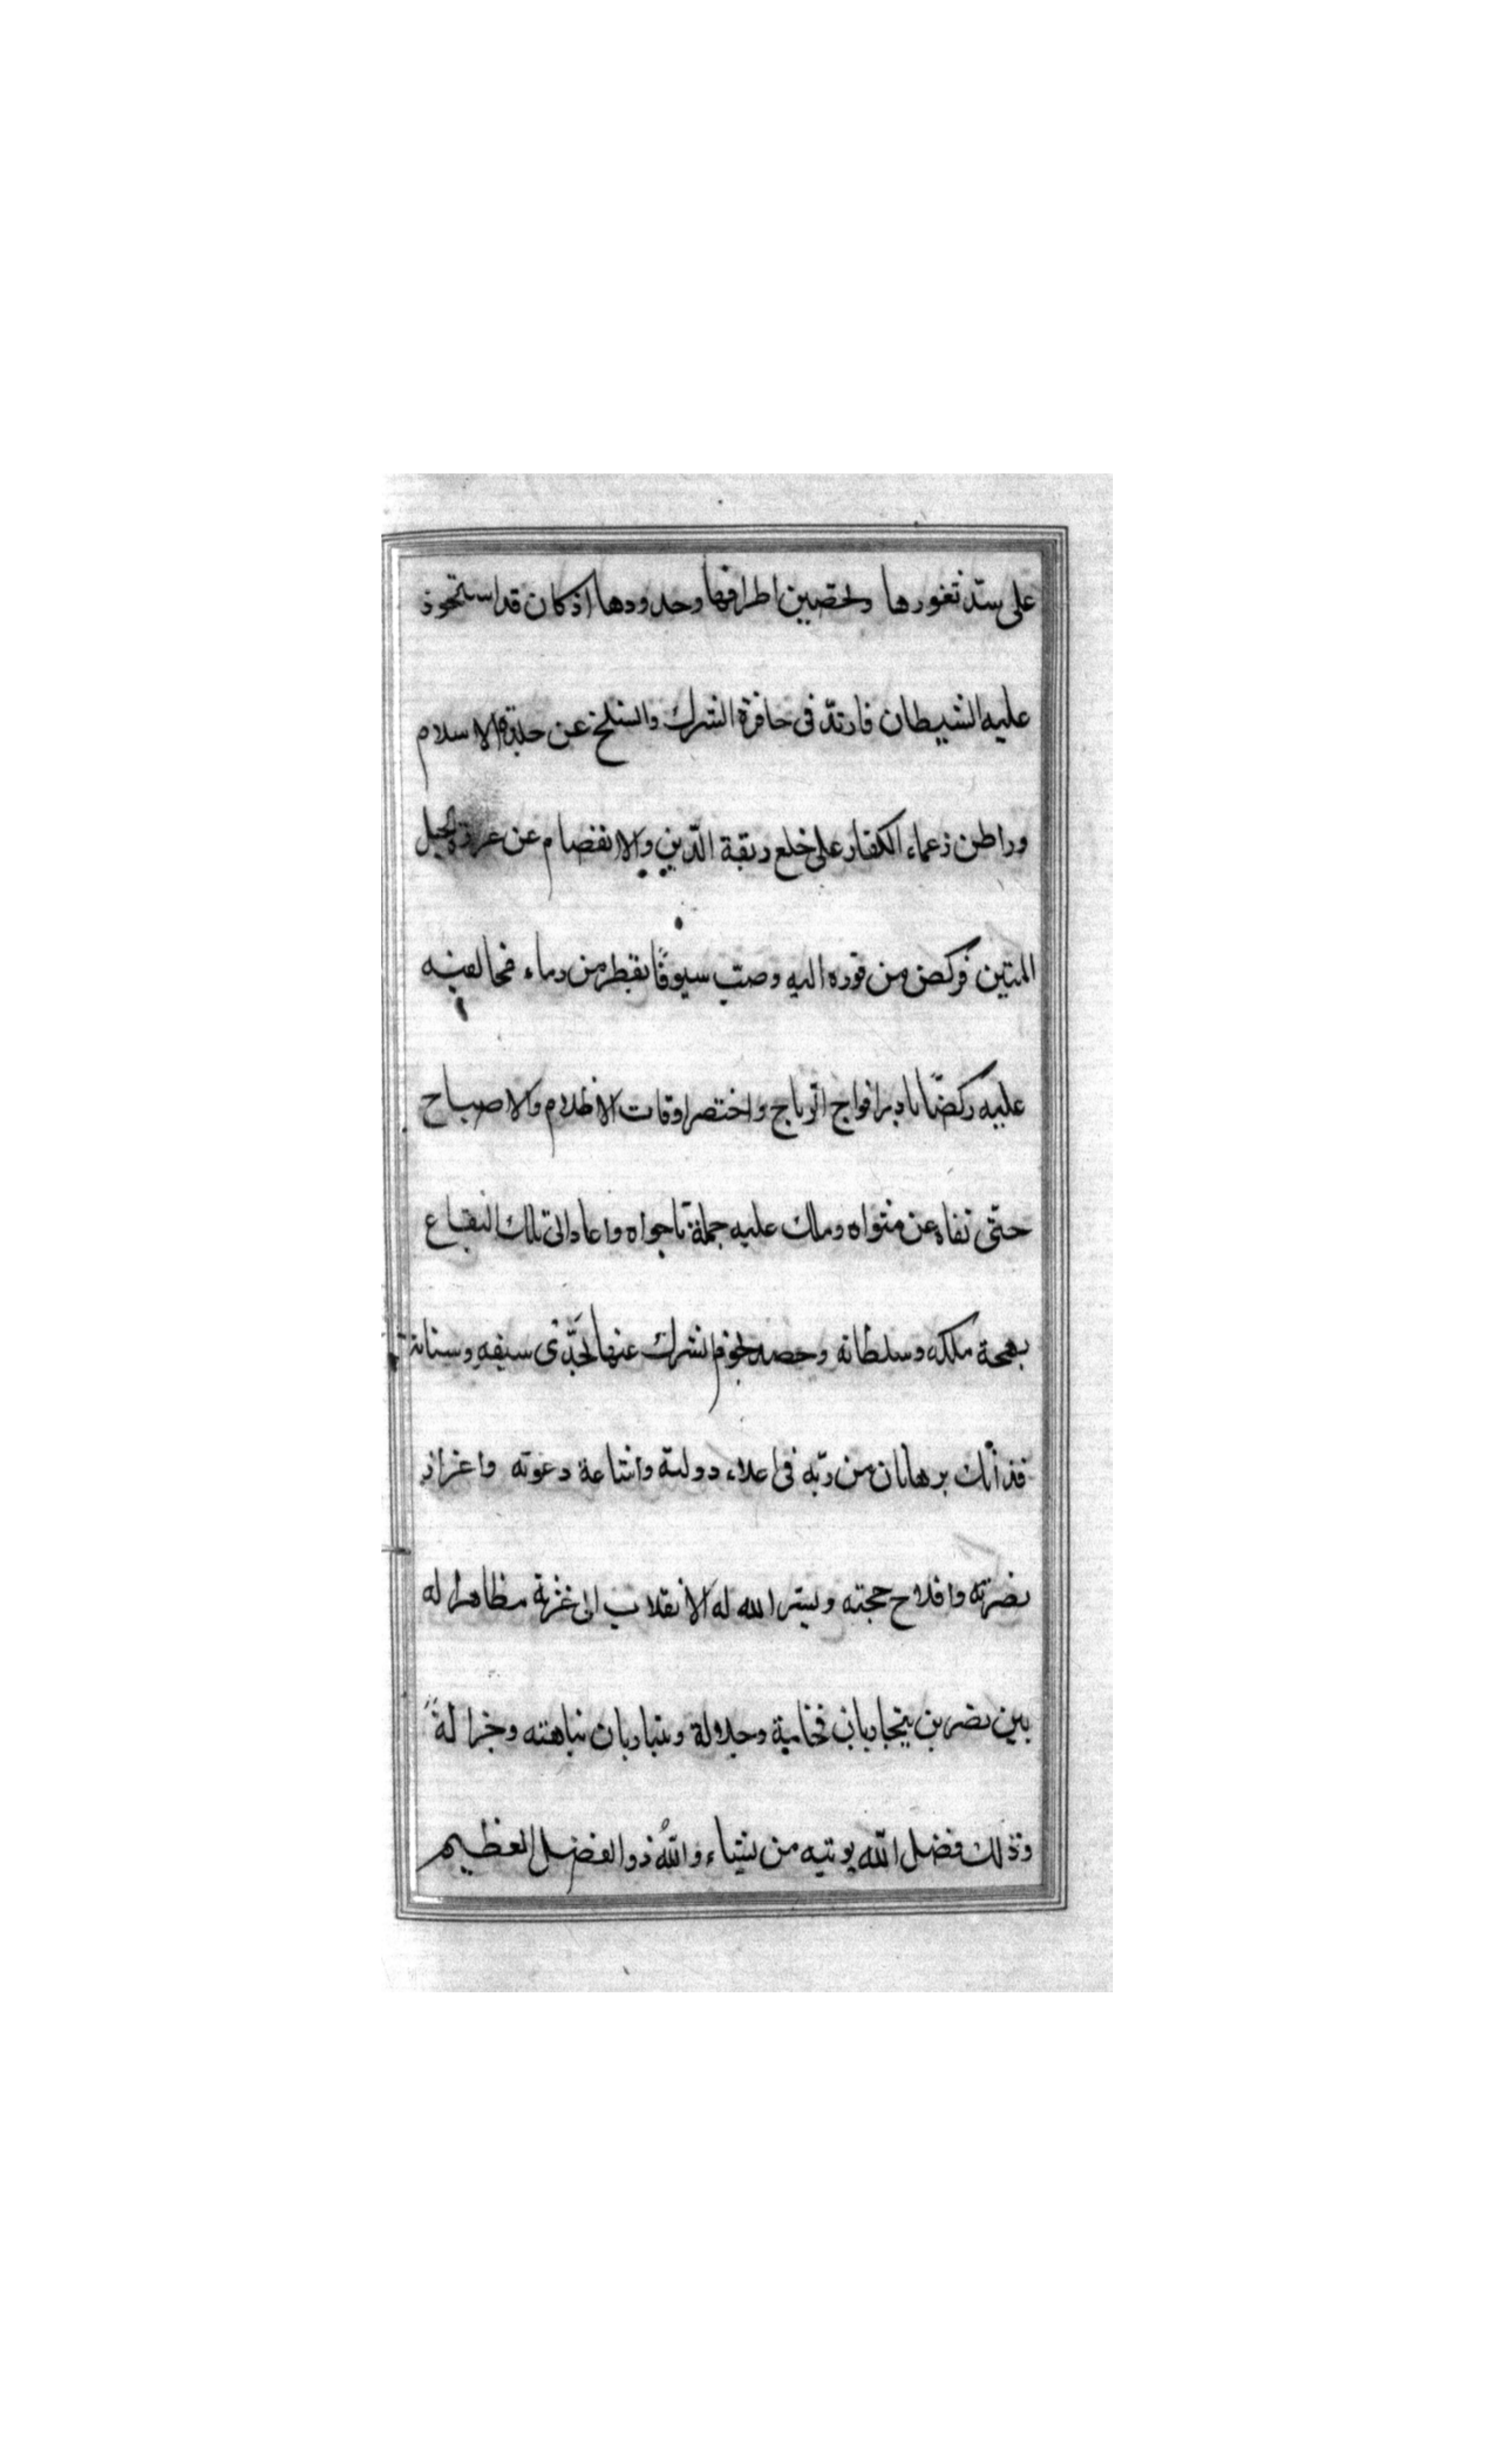 على سدّ ثغورها وتحصين اطرافها وحدودها اذ كان قد استحوذ
عليه الشيطان فارتدّ فى حافرة الشرك وانسلخ عن جلدة الاسلام
وراطن زعماء الكفار على خلع ربقة الدّين والانفصام عن عروة الحبل
المتين فركض من فوره اليه وصبّ سيوفًا تقطر من دماء مخالفيه
عليه ركضًا بادبر افواج الرياح واختصر اوقات الاظلام والاصباح
حتّى نفاه عن مثواه وملك عليه جملة ما حواه واعاد الى تلك البقاع
بهجة ملكه وسلطانه وحصد نجوم الشرك عنها بحدّى سيفه وسنانه
فذانك برهانان من ربّه فى اعلاء دولته واشاعة دعوته واعزاز
نصرته وافلاح حجته ويسّر الله له الانقلاب الى غزنة مظاهرا له
بين نصرين يتجاذبان فخامة وجلالة ويتباريان نباهته وجزالة
وذلك فضل الله يوتيه من يشاء والله ذو الفضل العظيم